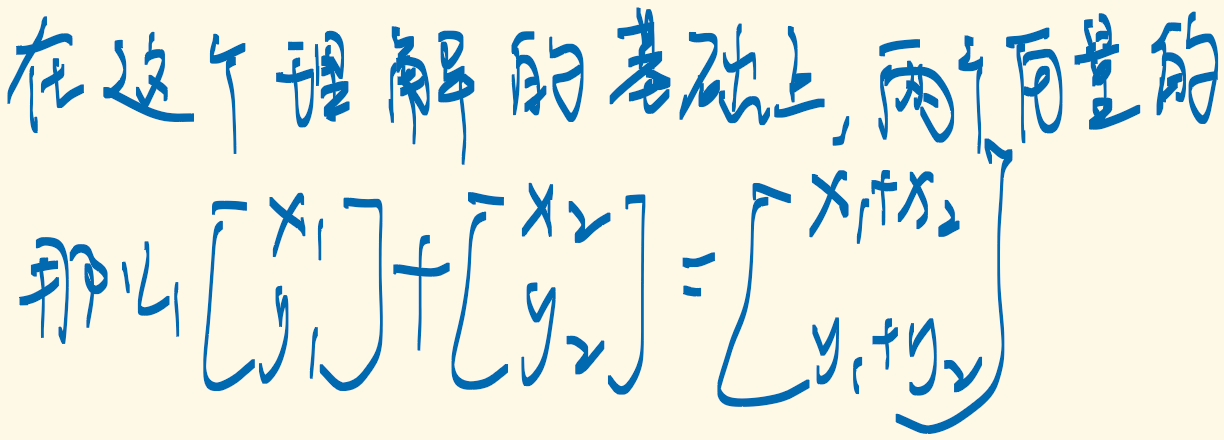 在这个理解的基础上,两个向量的
那么 [x₁ y₁] + [x₂ y₂] = [x₁+x₂ y₁+y₂]